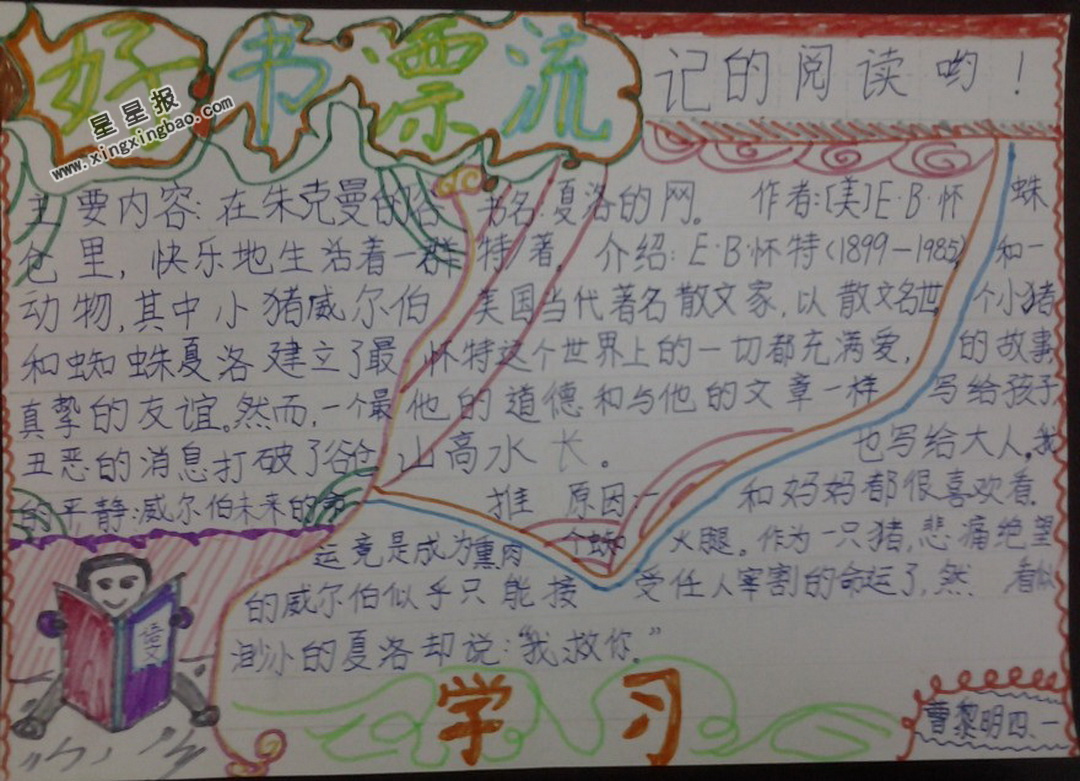 好书漂流
星星报
www.xingxingbao.com
记的阅读哟！
主要内容:在朱克曼的谷
仓里,快乐地生活着一群
动物,其中小猪威尔伯
和蜘蛛夏洛建立了最
真挚的友谊。然而,一个最
丑恶的消息打破了谷仓
的平静:威尔伯未来的命
运竟是成为熏肉 火腿。作为一只猪,悲痛绝望
的威尔伯似乎只能接 受任人宰割的命运了,然 看似
渺小的夏洛却说:“我救你.”
书名:夏洛的网。 作者:[美]E·B·怀
特/著。介绍:E·B·怀特(1899—1985)
美国当代著名散文家,以散文名世,
怀特这个世界上的一切都充满爱,
他的道德和与他的文章一样
山高水长。
推 原因:
一个蜘
蛛
和一
个小猪
的故事
写给孩子
也写给大人。我
和妈妈都很喜欢看.
语文
学习
曹黎明四.一